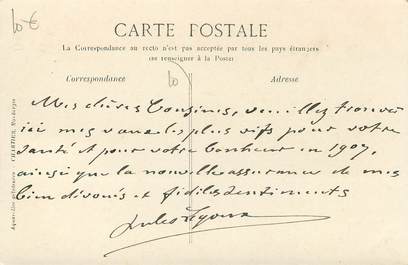 10 €
CARTE POSTALE
La Correspondance au recto n'est pas acceptée par tous les pays étrangers
(se renseigner à la Poste)
Correspondance
Adresse
10
Mes chères Cousines, veuillez trouver
ici mes vœux les plus vifs pour votre
santé et pour votre bonheur en 1907,
ainsi que la nouvelle assurance de mes
bien dévoués et fidèles sentiments
Jules